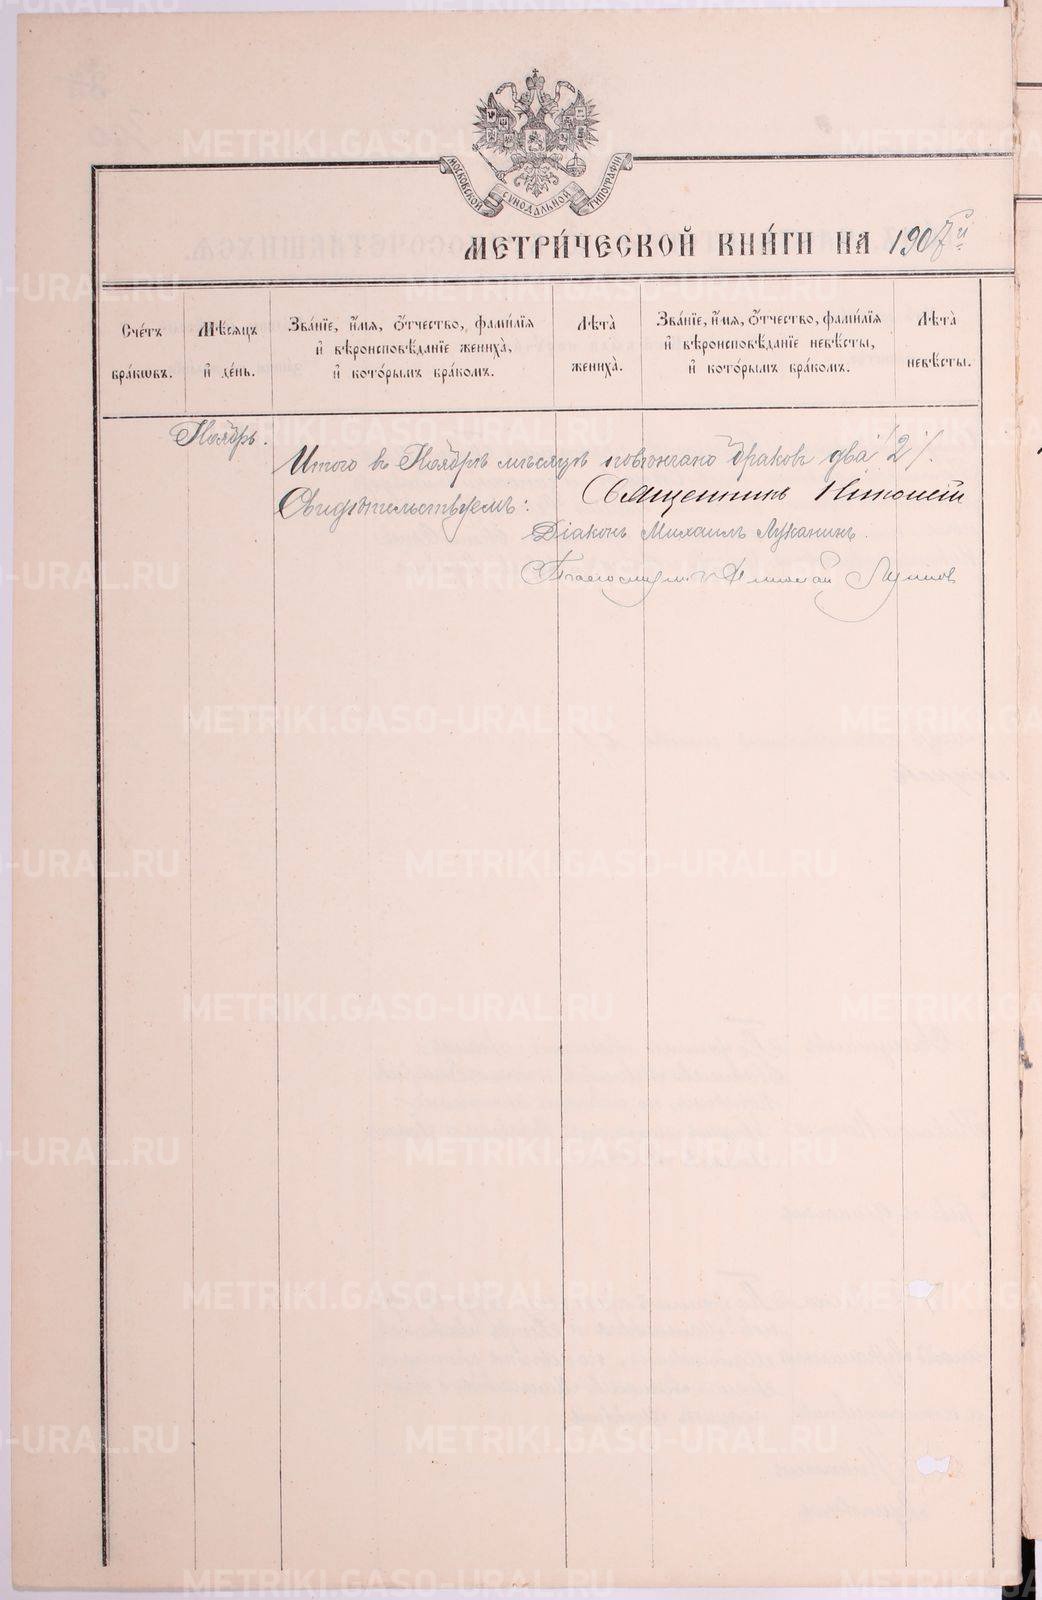 МОСКОВСКОЙ СѴНОДАЛЬНОЙ ТИПОГРАФІИ
МЕТРИ́ЧЕСКОЙ КНИ́ГИ НА 1907й
Сче́тъ бра́кѡвъ.
Мѣ́сяцъ и҆ де́нь.
Зва́нїе, и҆́мѧ, ѻ҆́тчество, фами́лїѧ и҆ вѣроисповѣ́данїе жениха̀, и҆ кото́рымъ бра́комъ.
Лѣта̀ жениха̀.
Зва́нїе, и҆́мѧ, ѻ҆́тчество, фами́лїѧ и҆ вѣроисповѣ́данїе невѣ́сты, и҆ кото́рымъ бра́комъ.
Лѣта̀ невѣ́сты.
Ноябрь.
Итого въ Ноябрѣ мѣсяцѣ повѣнчано браковъ два /2/.
Свидѣтельствуемъ: Священникъ
Діаконъ Михаилъ Луканинъ.
Николай
METRIKI.GASO-URAL.RU